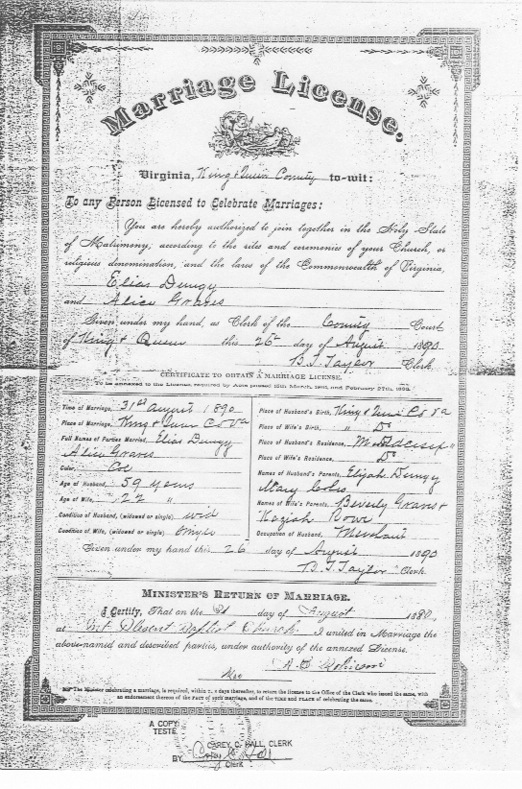 Marriage License.
Virginia, King & Queen County to-wit:
To any Person Licensed to Celebrate Marriages:
You are hereby authorized to join together in the Holy State
of Matrimony, according to the rites and ceremonies of your Church, or
religious denomination, and the laws of the Commonwealth of Virginia,
Elias Dungy
and Alice Graves
Given under my hand, as Clerk of the County Court
of King & Queen this 26 day of August 1890
B. T. Taylor Clerk
CERTIFICATE TO OBTAIN A MARRIAGE LICENSE.
To be annexed to the License, required by Acts passed 15th March, and February 27th,
Time of Marriage, 31st August 1890
Place of Marriage, King & Queen Co Va
Full Names of Parties Married, Elias Dungy
Alice Graves
Color, Col
Age of Husband, 59 years
Age of Wife, 22 "
Condition of Husband, (widowed or single) wid
Condition of Wife, (widowed or single) single
Place of Husband's Birth, King & Queen Co Va
Place of Wife's Birth, " Do
Place of Husband's Residence,
Place of Wife's Residence, Do
Names of Husband's Parents, Elijah Dungy
Mary
Names of Wife's Parents, Beverly Graves &
Keziah Rowe
Occupation of Husband, Merchant
Given under my hand this 26 day of August 1890
B. T. Taylor Clerk
MINISTER'S RETURN OF MARRIAGE.
I Certify, That on the 31 day of August 1890,
at Mt Pleasant Baptist Church I united in Marriage the
above-named and described parties, under authority of the annexed License.
A. B. Robinson
Rev
The Minister celebrating a marriage, is required, within days thereafter, to return the license to the Office of the Clerk who issued the same, with
an endorsement thereon of the FACT of such marriage, and of the TIME and PLACE of celebrating the same.
A COPY
TESTE
CAREY C. HALL, CLERK
BY Carey C. Hall
Clerk